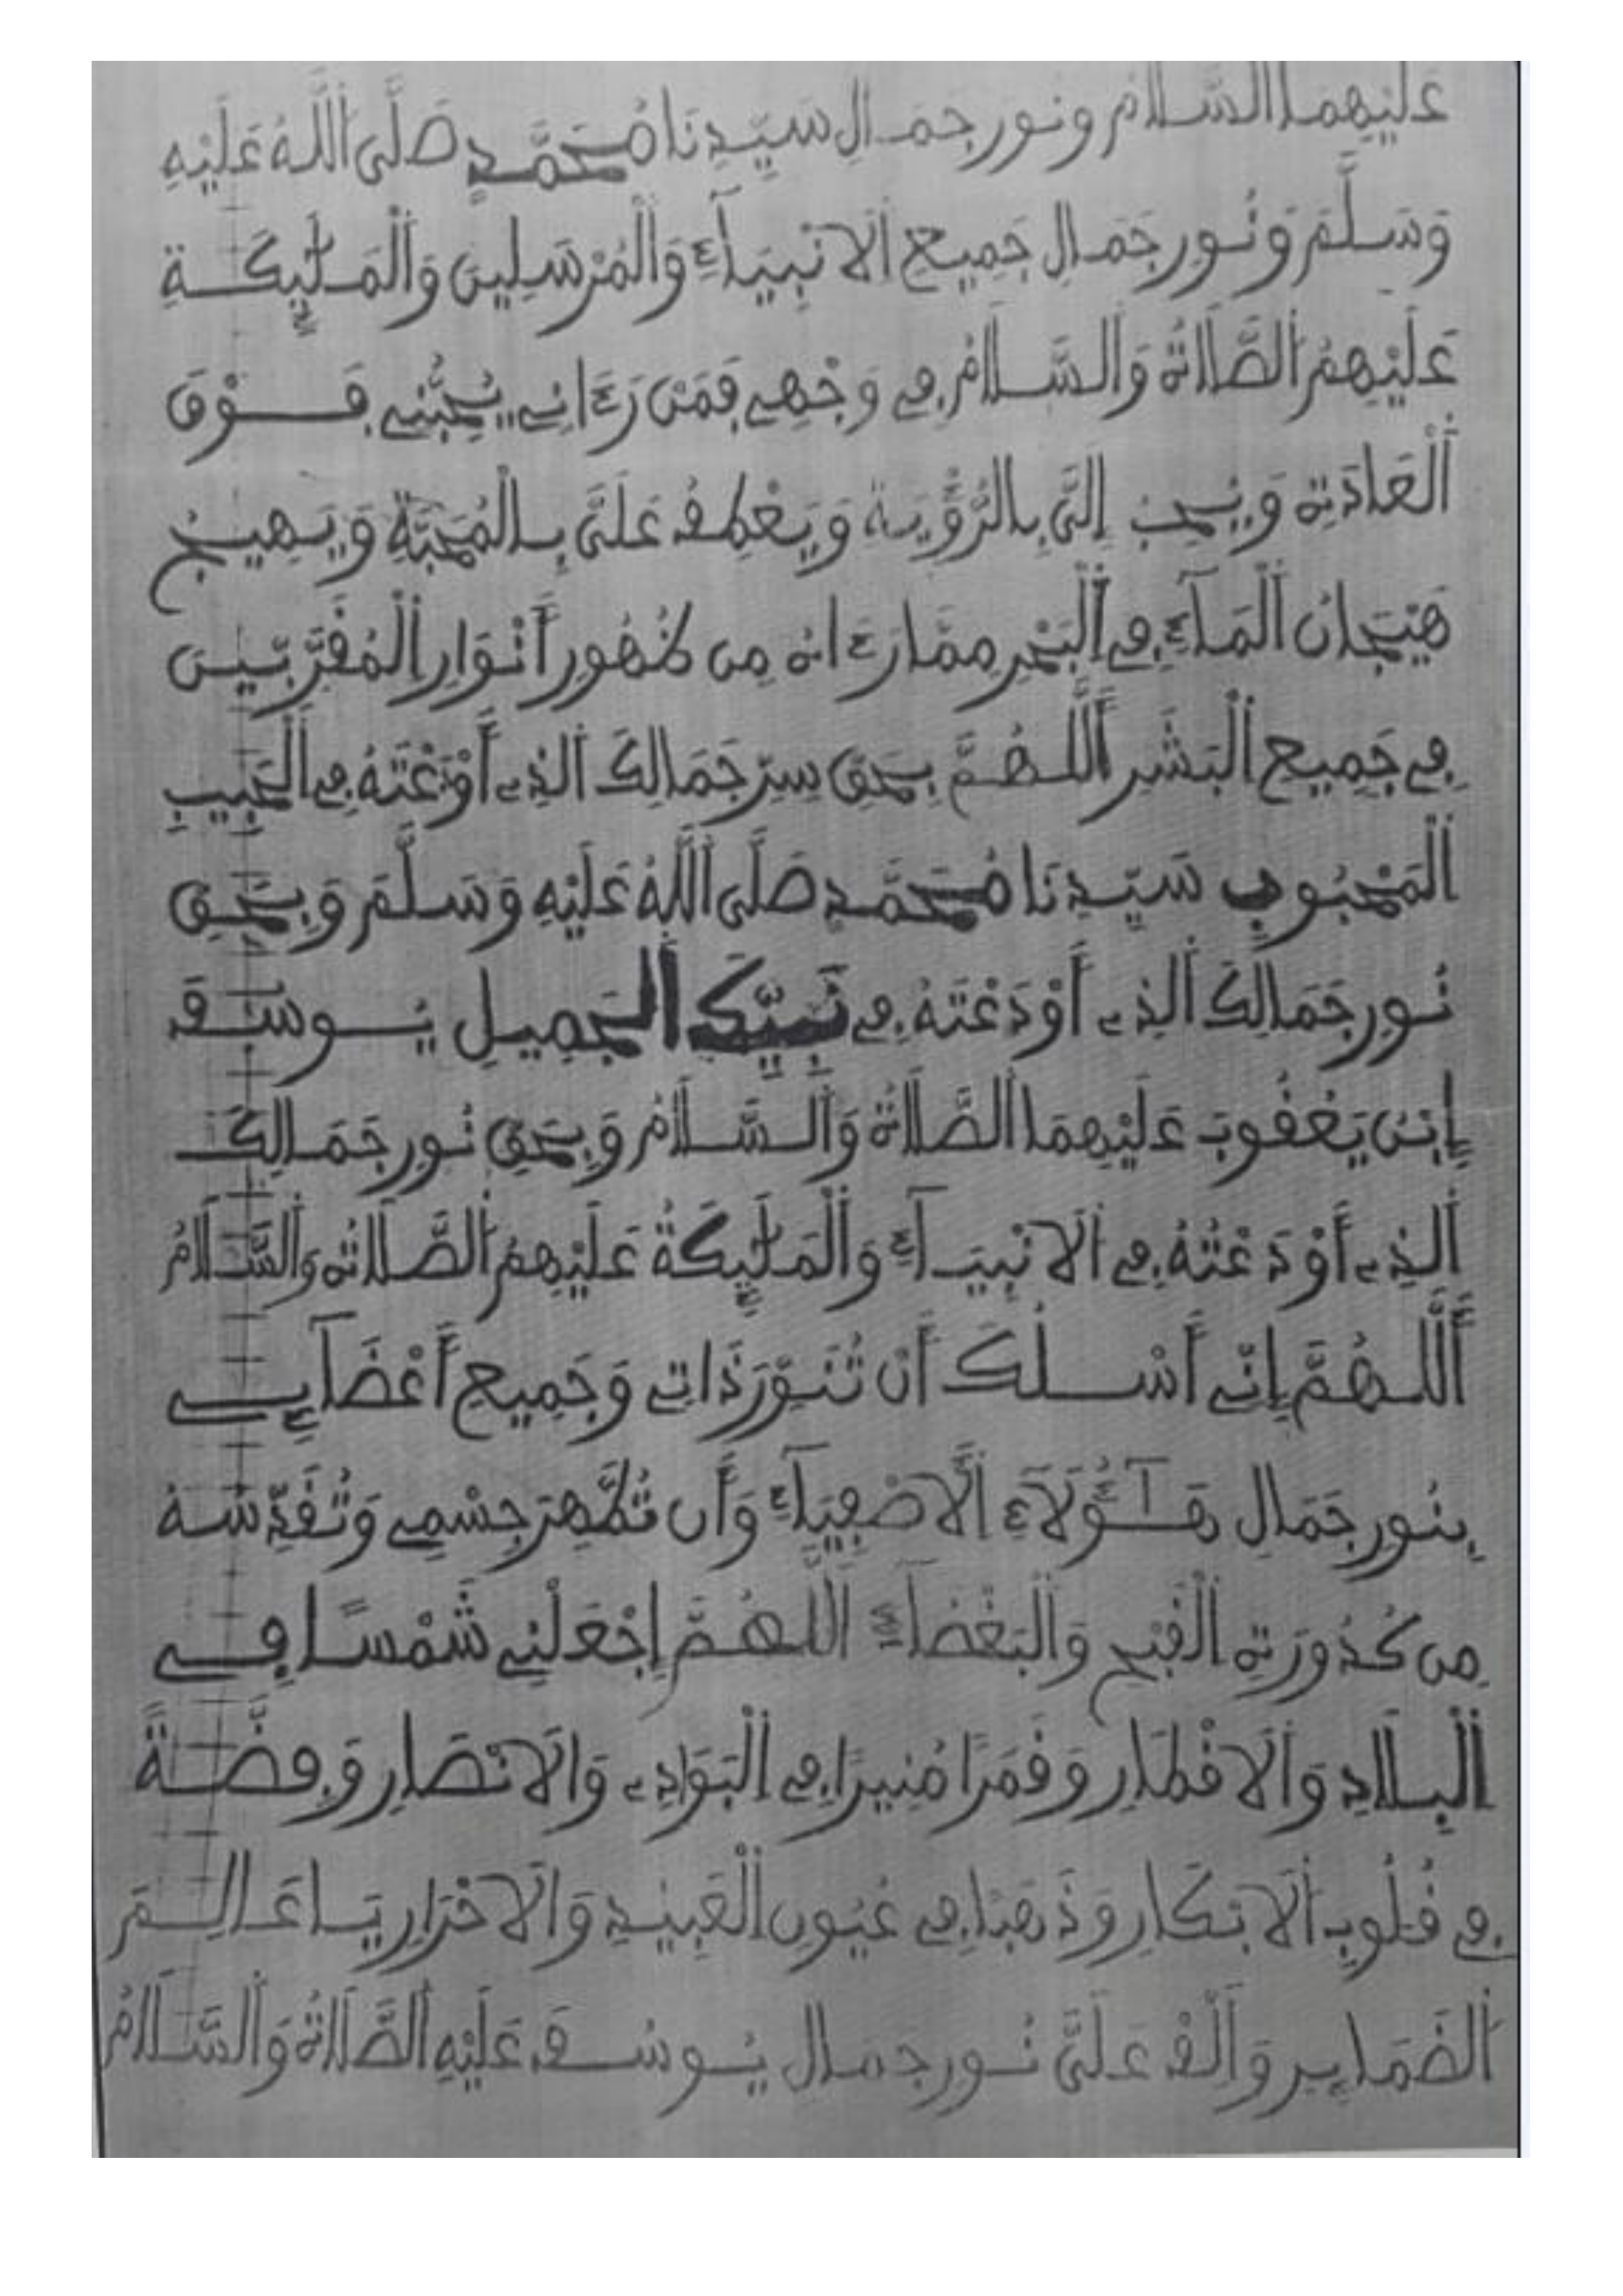 عَلَيْهِمَا السَّلَامُ وَنُورِ جَمَالِ سَيِّدِنَا مُحَمَّدٍ صَلَّى اللَّهُ عَلَيْهِ
وَسَلَّمَ وَنُورِ جَمَالِ جَمِيعِ الَانْبِيَآءِ وَالْمُرْسَلِينَ وَالْمَلَٰٓئِكَةِ
عَلَيْهِمُ الصَّلَاةُ وَالسَّلَامُ فِے وَجْهِے فَمَنْ رَءَانِے يُحِبُّنِے فَوْقَ
الْعَادَةِ وَيُحِبُّ إِلَىَّ بِالرُّؤْيَةِ وَيَعْطِفُ عَلَىَّ بِالْمُحَبَّةِ وَيَهِيجُ
هَيَجَانَ الْمَآءِ فِے الْبَحْرِ مِمَّا رَءَاهُ مِن ظُهُورِ أَنْوَارِ الْمُقَرَّبِينَ
فِے جَمِيعِ الْبَشَرِ أَللَّهُمَّ بِحَقِّ سِرِّ جَمَالِكَ الذِے أَوْدَعْتَهُ فِے الْحَبِيبِ
الْمَحْبُوبِ سَيِّدِنَا مُحَمَّدٍ صَلَّى اللَّهُ عَلَيْهِ وَسَلَّمَ وَبِحَقِّ
نُورِ جَمَالِكَ الذِے أَوْدَعْتَهُ فِے نَبِيِّكَ الْجَمِيلِ يُوسُفَ
إِبْنِ يَعْقُوبَ عَلَيْهِمَا الصَّلَاةُ وَالسَّلَامُ وَبِحَقِّ نُورِ جَمَالِكَ
الذِے أَوْدَعْتَهُ فِے الَانْبِيَآءِ وَالْمَلَٰٓئِكَةِ عَلَيْهِمُ الصَّلَاتُ وَالسَّلَامُ
أَللَّهُمَّ إِنِّے أَسْـَٔلُكَ أَن تُنَوِّرَ ذَاتِے وَجَمِيعَ أَعْضَآئِے
بِنُورِ جَمَالِ هَٰٓؤُلَآءِ الَاصْفِيَآءِ وَأَن تُطَهِّرَ جِسْمِے وَتُقَدِّسَهُ
مِن كُدُورَةِ الْقُبْحِ وَالْبَغْضَآءِ اللَّهُمَّ إِجْعَلْنِے شَمْسًا فِے
الْبِلَادِ وَالَاقْطَارِ وَقَمَرًا مُنِيرًا فِے الْبَوَادِے وَالَانْصَارِ وَفِضَّةً
فِے قُلُوبِ الَابْكَارِ وَذَهَبًا فِے عُيُونِ الْعَبِيدِ وَالَاحْرَارِ يَا عَالِمَ
الضَّمَايِرِ وَأَلْقِ عَلَىَّ نُورَ جَمَالِ يُوسُفَ عَلَيْهِ الصَّلَاةُ وَالسَّلَامُ